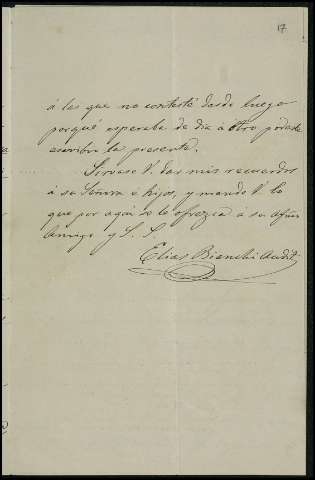 17
á las que no contesté desde luego
porqué esperaba de dia á otro poderle
escribir la presente.
Sirvase V. dar mis recuerdos
a su Señora é hijos, y mande V. lo
que por aqui se le ofrezca a su afmo
Amigo y S. S.
Elias Bianchi